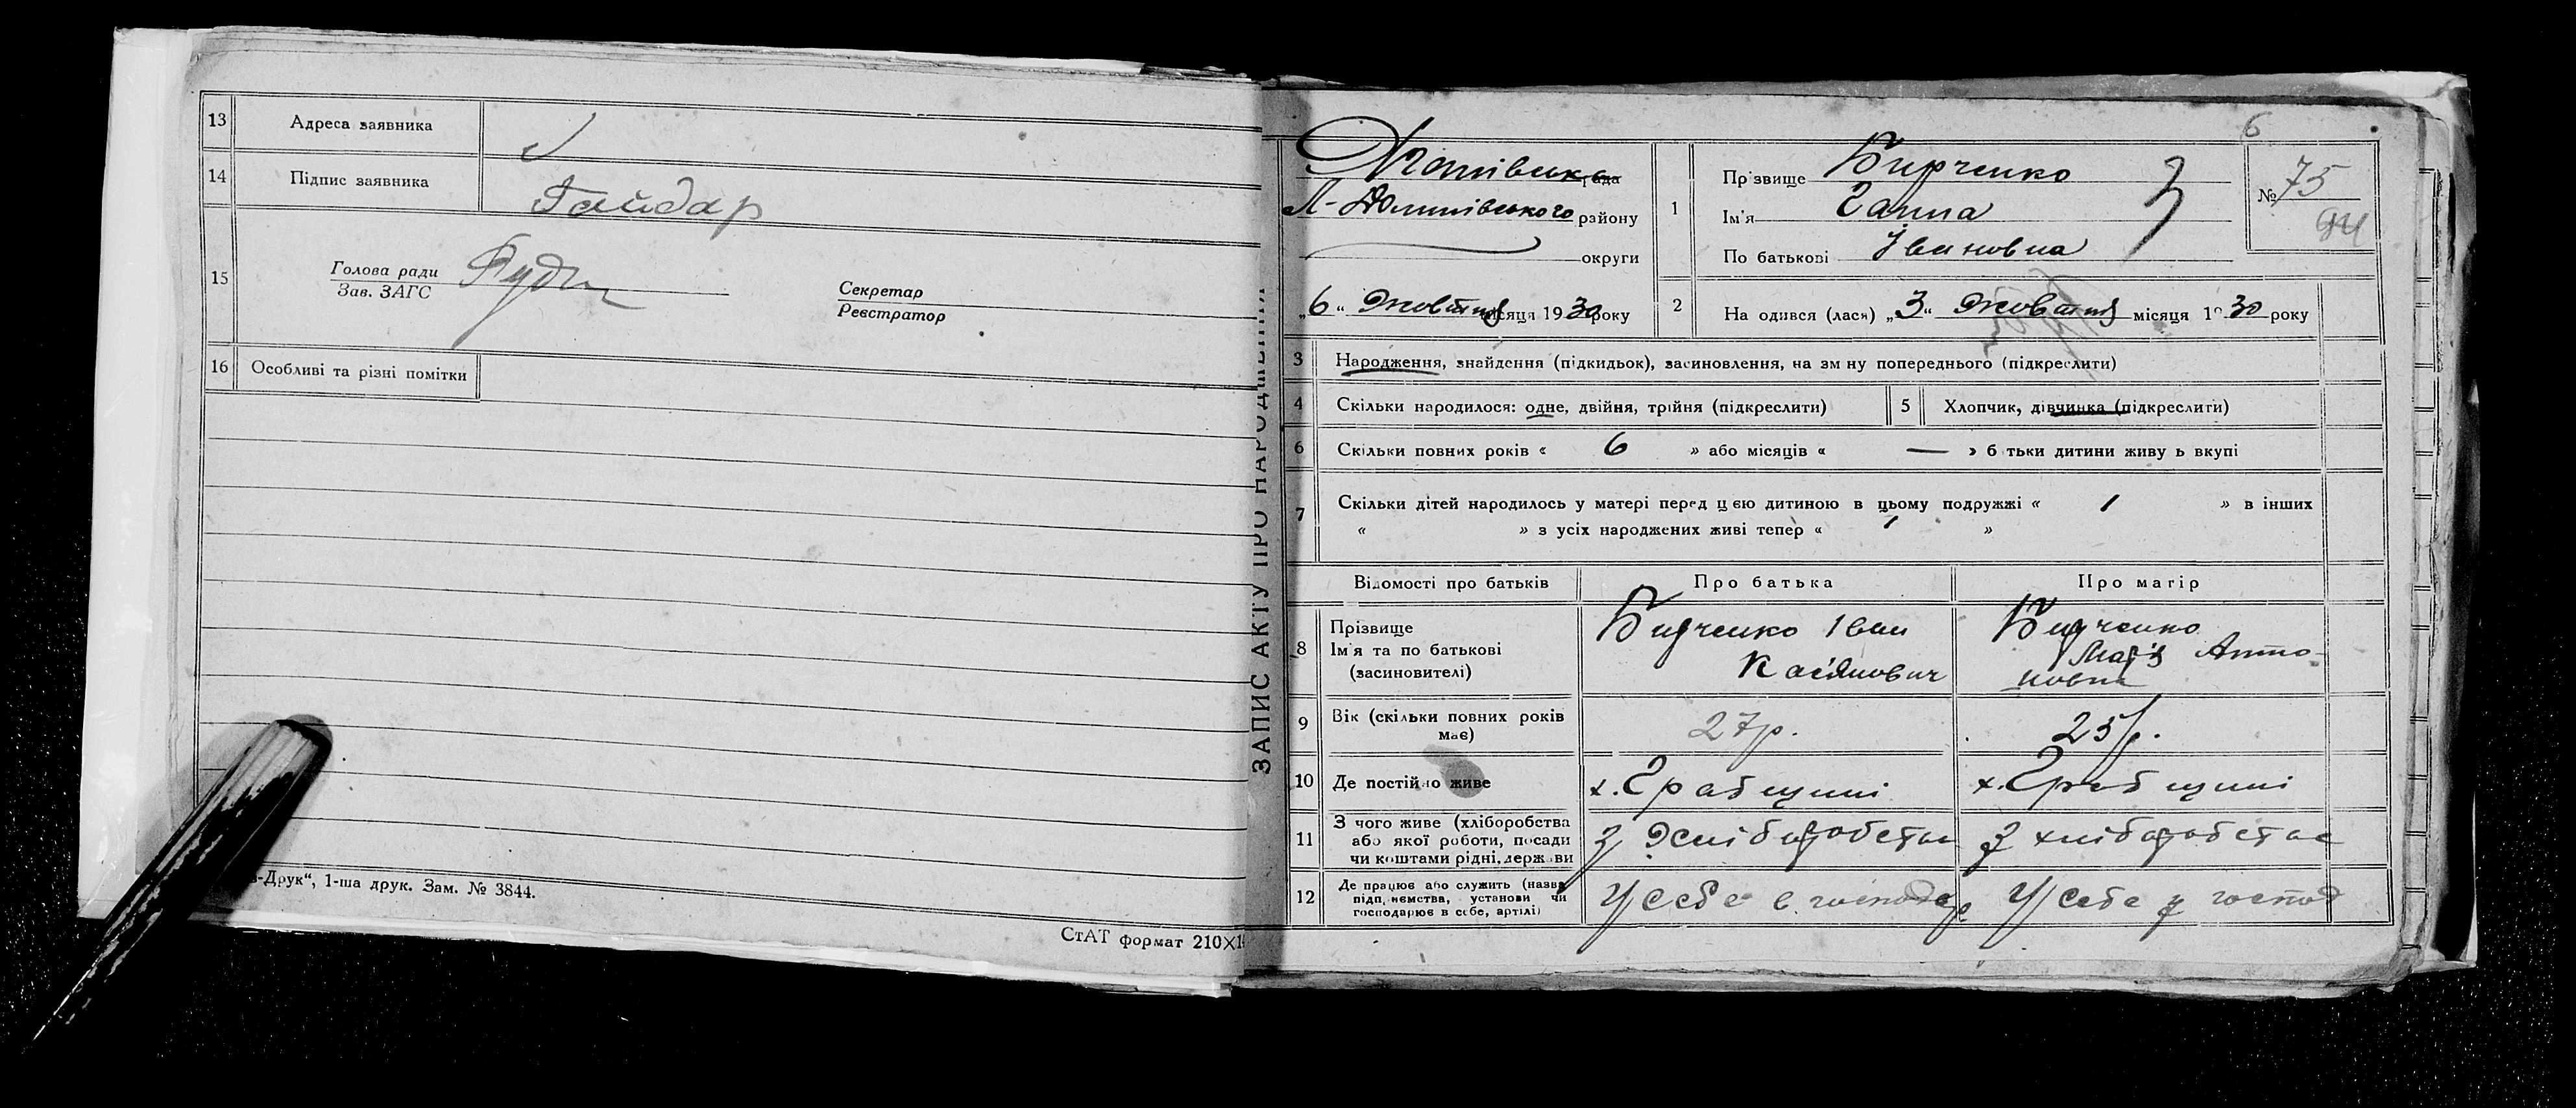 13 Адреса заявника
14 Підпис заявника Гайдар
15 Голова ради
Зав. ЗАГС
Секретар
Реєстратор
16 Особливі та різні помітки
-Друк“, 1-ша друк. Зам. № 3844.
СтАТ формат 210×14
ЗАПИС АКТУ ПРО НАРОДЖЕННЯ
6
рада
району
округи
„6“ Жовтня місяця 1930 року
1 Прізвище Бирченко
Ім'я Ганна
По батькові Івановна
З
№ 75
94
2 На одився (лася) „3“ Жовтня місяця 1930 року
3 Народження, знайдення (підкидьок), засиновлення, на зм ну попереднього (підкреслити)
4 Скільки народилося: одне, двійня, трійня (підкреслити) 5 Хлопчик, дівчинка (підкреслити)
6 Скільки повних років « 6 » або місяців « — » б тьки дитини живу ь вкупі
7 Скільки дітей народилось у матері перед цією дитиною в цьому подружжі « 1 » в інших
« » з усіх народжених живі тепер « 1 »
Відомості про батьків Про батька Про матір
8 Прізвище
Ім'я та по батькові
(засиновителі)
Бирченко Іван
Касянович
Бирченко
Марія Анто-
новна
9 Вік (скільки повних років
має)
27р. 25р.
10 Де постійно живе х. Грабщині х. Грабщині
11 З чого живе (хліборобства
або якої роботи, посади
чи коштами рідні, держ ви
з хліборобства з хліборобства
12 Де працює або служить (назва
підп иємства, установи чи
господарює в себе, артілі)
У себе в господ У себе у господ